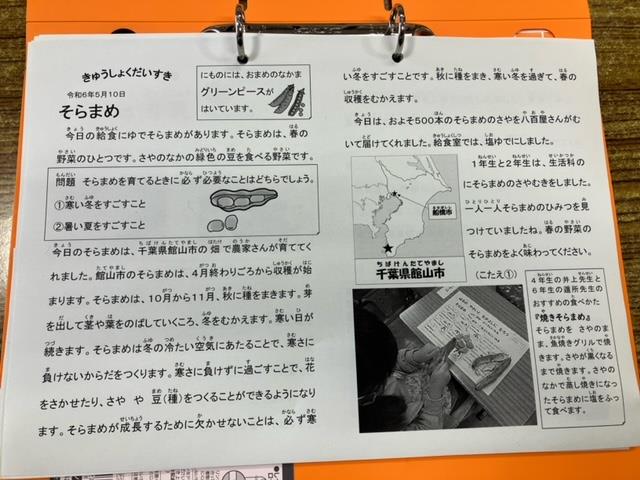 きゅうしょくだいすき
令和6年5月10日
そらまめ
にものには、おまめのなかま
グリーンピースが
はいています。
今日の給食にゆでそらまめがあります。そらまめは、春の
野菜のひとつです。さやのなかの緑色の豆を食べる野菜です。
問題 そらまめを育てるときに必ず必要なことはどちらでしょう。
①寒い冬をすごすこと
②暑い夏をすごすこと
今日のそらまめは、千葉県館山市の畑で農家さんが育ててく
れました。館山市のそらまめは、4月終わりごろから収穫が始
まります。そらまめは、10月から11月、秋に種をまきます。芽
を出して茎や葉をのばしていくころ、冬をむかえます。寒い日が
続きます。そらまめは冬の冷たい空気にあたることで、寒さに
負けないからだをつくります。寒さに負けずに過ごすことで、花
をさかせたり、さや や 豆(種)をつくることができるようになり
ます。そらまめが成長するために欠かせないことは、必ず寒
い冬をすごすことです。秋に種をまき、寒い冬を過ぎて、春の
収穫をむかえます。
今日は、およそ500本のそらまめのさやを八百屋さんがむ
いて届けてくれました。給食室では、塩ゆでにしました。
1年生と2年生は、生活科の
にそらまめのさやむきをしました。
一人一人そらまめのひみつを見
つけていましたね。春の野菜の
そらまめをよく味わってください。
(こたえ①)
船橋市
千葉県館山市
4年生の井上先生と
6年生の道所先生の
おすすめの食べかた
『焼きそらまめ』
そらまめを さやのま
ま、魚焼きグリルで焼
きます。さやが黒くなる
まで焼きます。さやの
なかで蒸し焼きになっ
たそらまめに塩をふっ
て食べます。